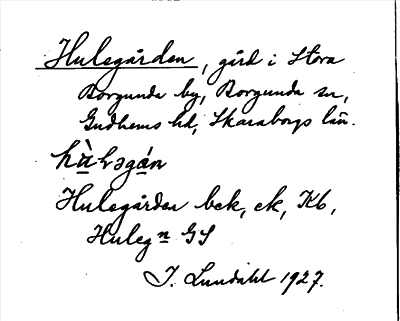 Hulegården, gård i Stora
Borgunda by, Borgunda sn,
Gudhems hd, Skaraborgs län.
Hulegården bek, ek, Kb,
Huleg n GS
I. Lundahl 1927.